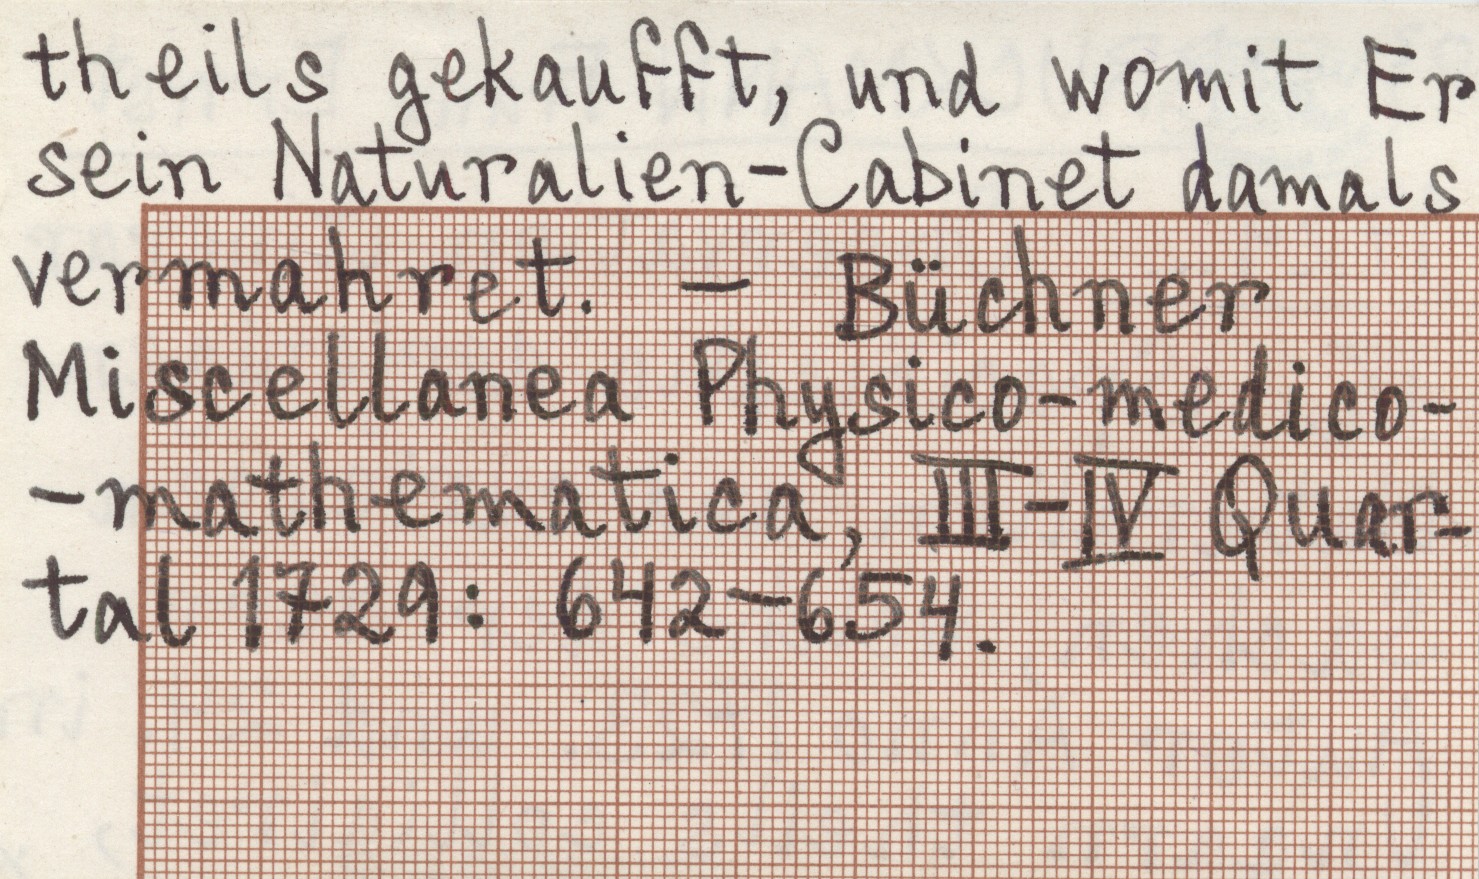 theils gekaufft, und womit Er
sein Naturalien-Cabinet damals
vermahret. – Büchner
Miscellanea Physico-medico-
-mathematica, III-IV Quar-
tal 1729: 642-654.